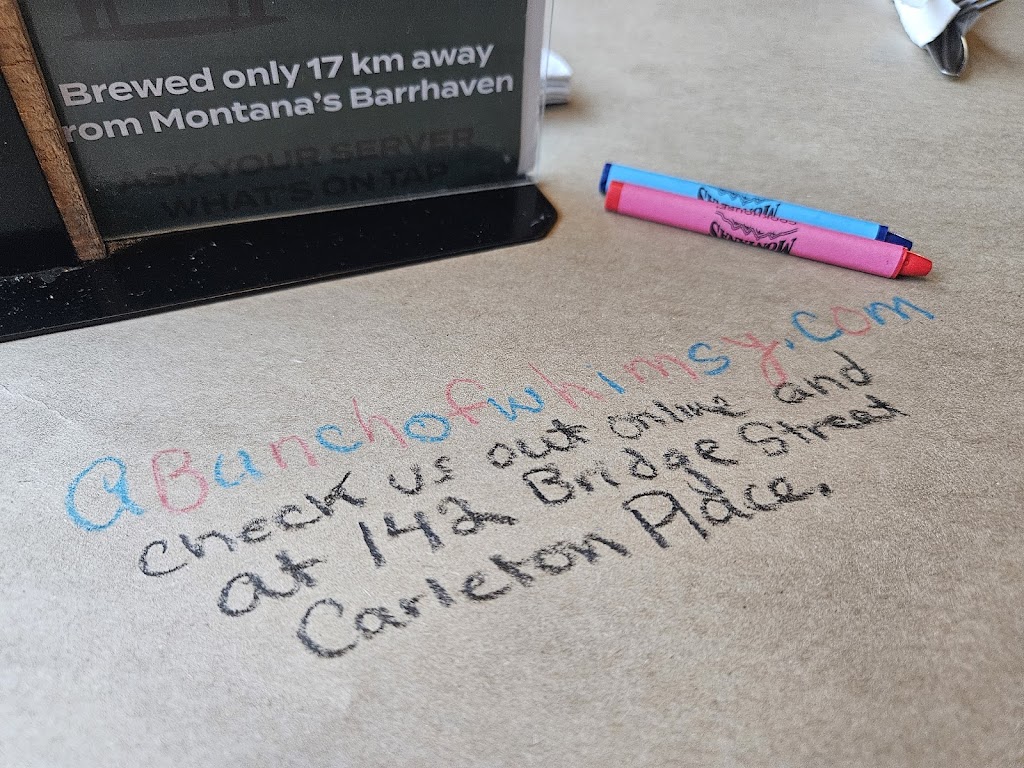 Brewed only 17 km away
from Montana's Barrhaven
ASK YOUR SERVER
WHAT'S ON TAP
MONTANA'S
MONTANA'S
aBunchofwhimsy.com
check us out online and
at 142 Bridge Street
Carleton Place.